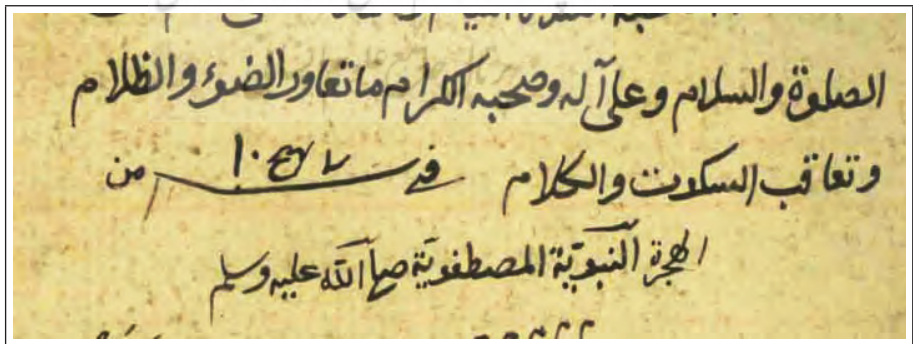 الصلوة والسلام وعلى آله وصحبه الكرام ما تعاور الضوء والظلام
وتعاقب السكوت والكلام في من
الهجرة النبويّة المصطفويّة صلى الله عليه وسلم